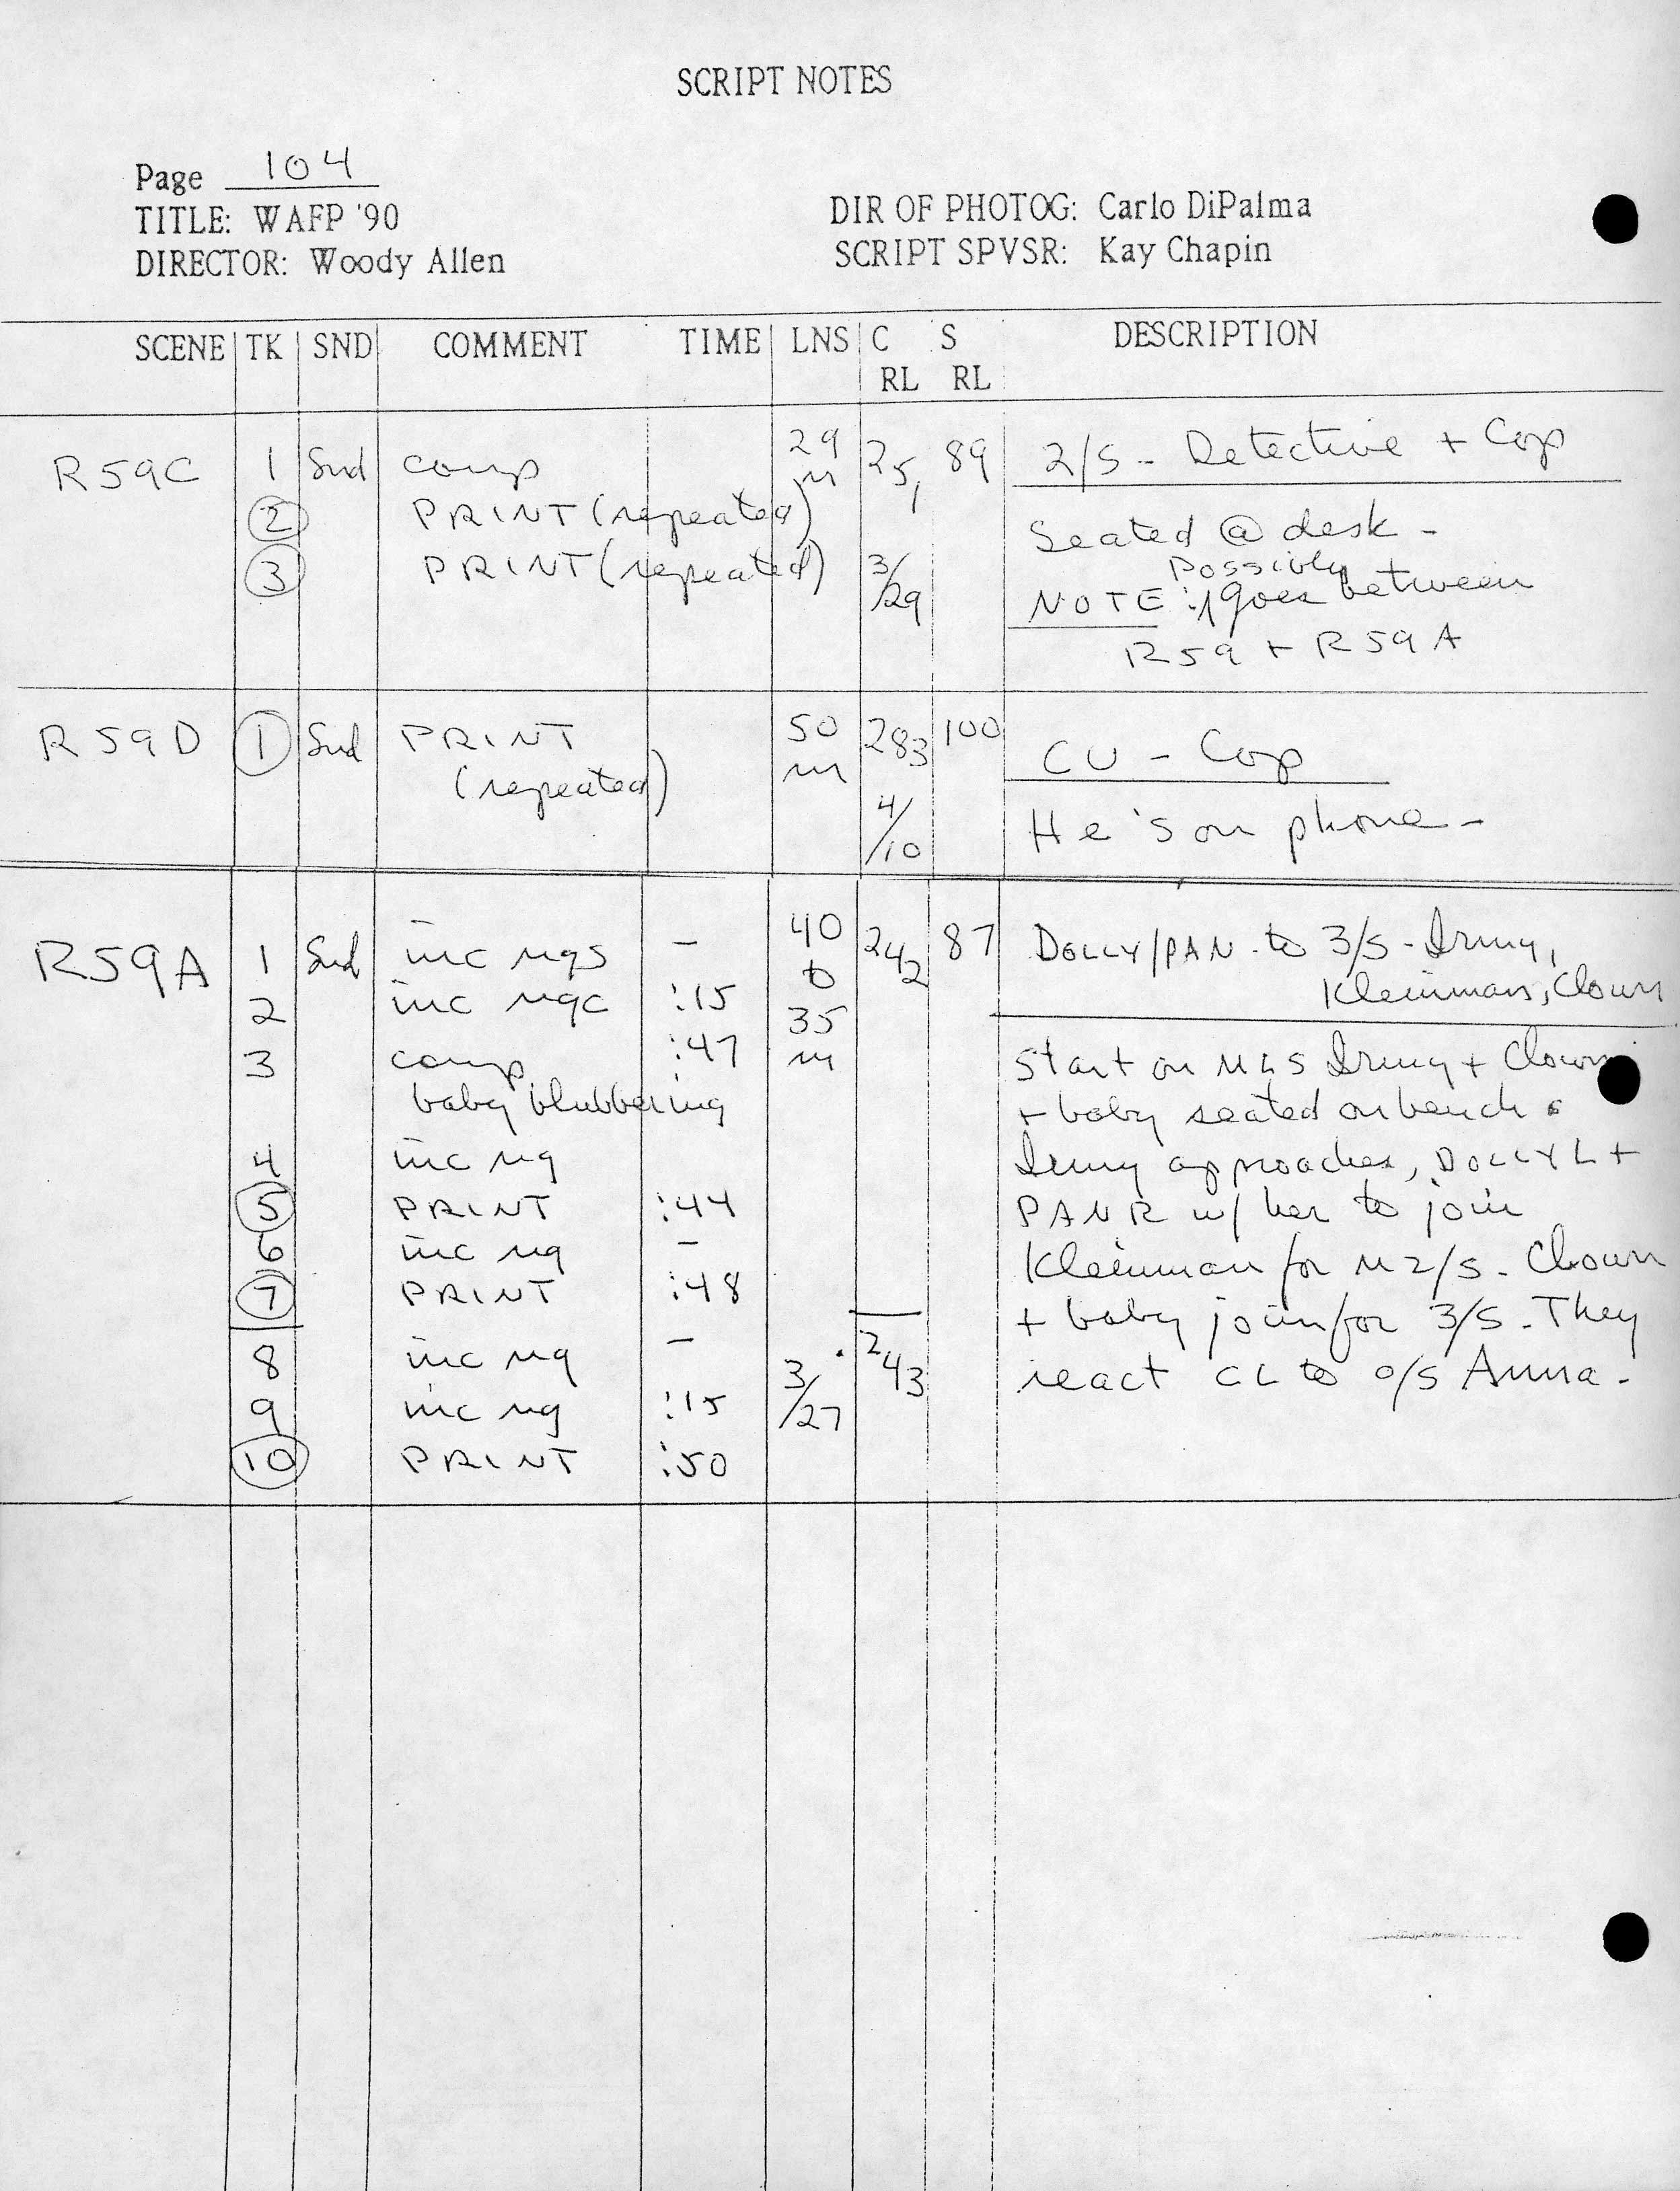 SCRIPT NOTES
Page 104
TITLE: WAFP '90
DIRECTOR: Woody Allen
DIR OF PHOTOG: Carlo DiPalma
SCRIPT SPVSR: Kay Chapin
SCENE TK SND COMMENT TIME LNS C S DESCRIPTION
RL RL
R59C 1 Snd comp 29 m 25, 89 2/S - Detective + Cop
2 PRINT (repeated) Seated @ desk -
3 PRINT (repeated) 3/29 possibly
NOTE: goes between
R59 + R59A
R59D 1 Snd PRINT 50 m 283 100 CU - Cop
(repeated) 4/10 He's on phone -
R59A 1 Snd inc ngs - 40 242 87 DOLLY/PAN to 3/S - Irmy,
to Kleinman, Clown
2 inc ngc :15 35
3 comp :47 m Start on MLS Irmy + Clown
baby blubbering + baby seated on bench.
4 inc ng Irmy approaches, DOLLY L +
5 PRINT :44 PAN R w/ her to join
6 inc ng - Kleinman for M2/S. Clown
7 PRINT :48 + baby join for 3/S. They
8 inc ng - 3/27 243 react CL to o/S Anna -
9 inc ng :15
10 PRINT :50